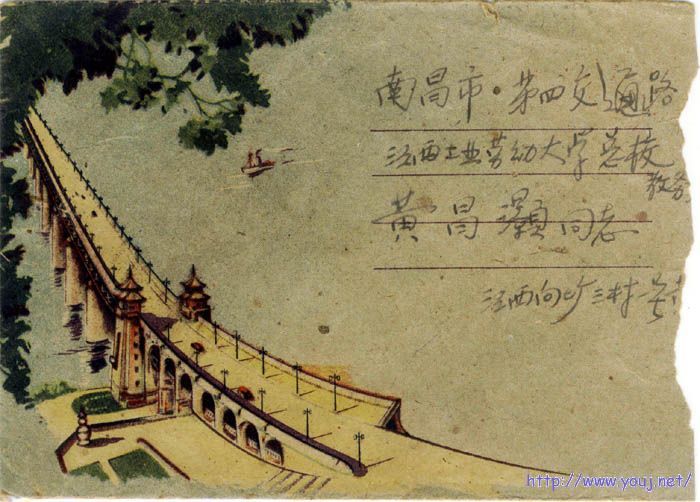 南昌市·第四交通路
江西工业劳动大学总校
教务
黄昌灏同志
江西向 三村一号
http://www.youj.net/